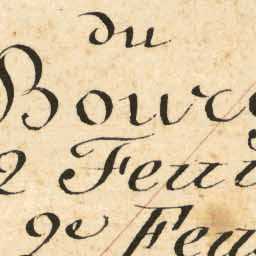 du
Bourg
2 Feui
2e Feu